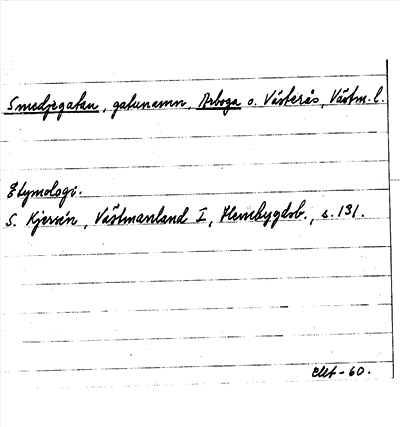 Smedjegatan, gatunamn, Arboga o. Västerås, Västm. l.
Etymologi.
S. Kjersén, Västmanland I, Hembygdsb., s. 131.
-60.